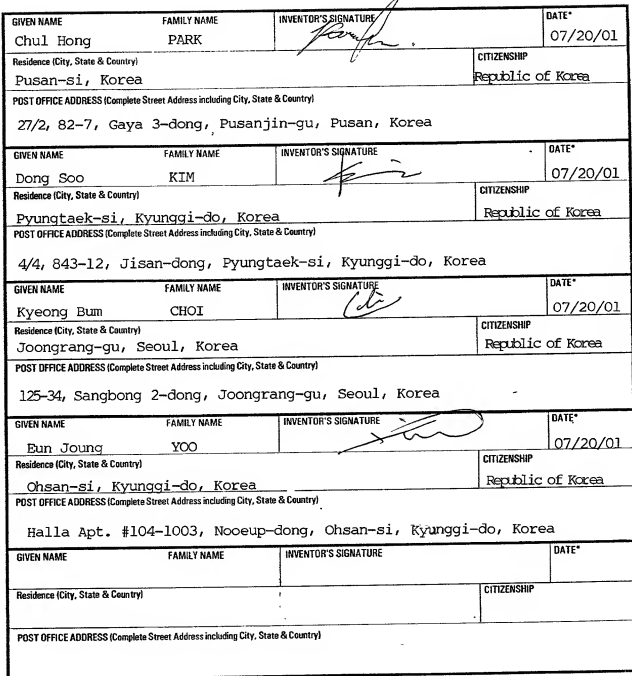 GIVEN NAME FAMILY NAME INVENTOR'S SIGNATURE DATE*
Chul Hong PARK 07/20/01
Residence (City, State & Country) CITIZENSHIP
Pusan-si, Korea Republic of Korea
POST OFFICE ADDRESS (Complete Street Address including City, State & Country)
27/2, 82-7, Gaya 3-dong, Pusanjin-gu, Pusan, Korea
GIVEN NAME FAMILY NAME INVENTOR'S SIGNATURE DATE*
Dong Soo KIM 07/20/01
Residence (City, State & Country) CITIZENSHIP
Pyungtaek-si, Kyunggi-do, Korea Republic of Korea
POST OFFICE ADDRESS (Complete Street Address including City, State & Country)
4/4, 843-12, Jisan-dong, Pyungtaek-si, Kyunggi-do, Korea
GIVEN NAME FAMILY NAME INVENTOR'S SIGNATURE DATE*
Kyeong Bum CHOI 07/20/01
Residence (City, State & Country) CITIZENSHIP
Joongrang-gu, Seoul, Korea Republic of Korea
POST OFFICE ADDRESS (Complete Street Address including City, State & Country)
125-34, Sangbong 2-dong, Joongrang-gu, Seoul, Korea
GIVEN NAME FAMILY NAME INVENTOR'S SIGNATURE DATE*
Eun Joung YOO 07/20/01
Residence (City, State & Country) CITIZENSHIP
Ohsan-si, Kyunggi-do, Korea Republic of Korea
POST OFFICE ADDRESS (Complete Street Address including City, State & Country)
Halla Apt. #104-1003, Nooeup-dong, Ohsan-si, Kyunggi-do, Korea
GIVEN NAME FAMILY NAME INVENTOR'S SIGNATURE DATE*
Residence (City, State & Country) CITIZENSHIP
POST OFFICE ADDRESS (Complete Street Address including City, State & Country)